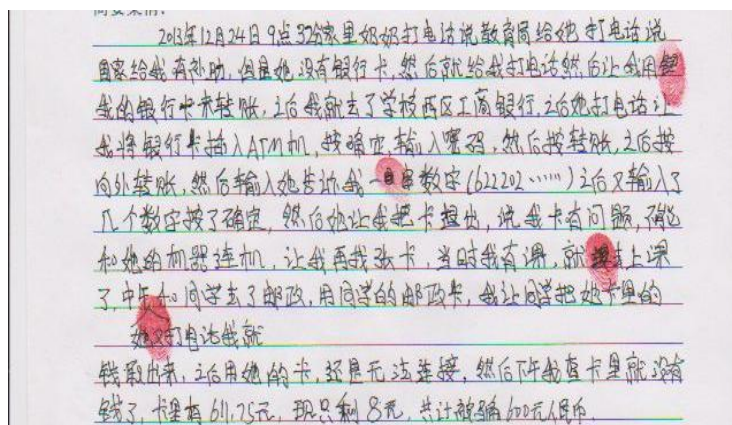 简要案情:
2013年12月24日9点32分家里奶奶打电话说教育局给她打电话说
国家给我有补助,但是她没有银行卡,然后就给我打电话然后让我用
我的银行卡来转账,之后我就去了学校西区工商银行,之后她打电话让
我将银行卡插入ATM机,按确定,输入密码,然后按转账,之后按
向外转账,然后输入她告诉我一串数字(622202……)之后又输入了
几个数字按了确定,然后她让我把卡拔出,说我卡有问题,不能
和她的机器连机,让我再找张卡,当时我有课,就去上课
了,中午和同学去了邮政,用同学的邮政卡,我让同学把她卡里的
她又打电话我就
钱取出来,之后用她的卡,还是无法连接,然后下午我查卡里就没有
钱了,卡里有611.75元,现只剩8元,共计被骗600元人民币.